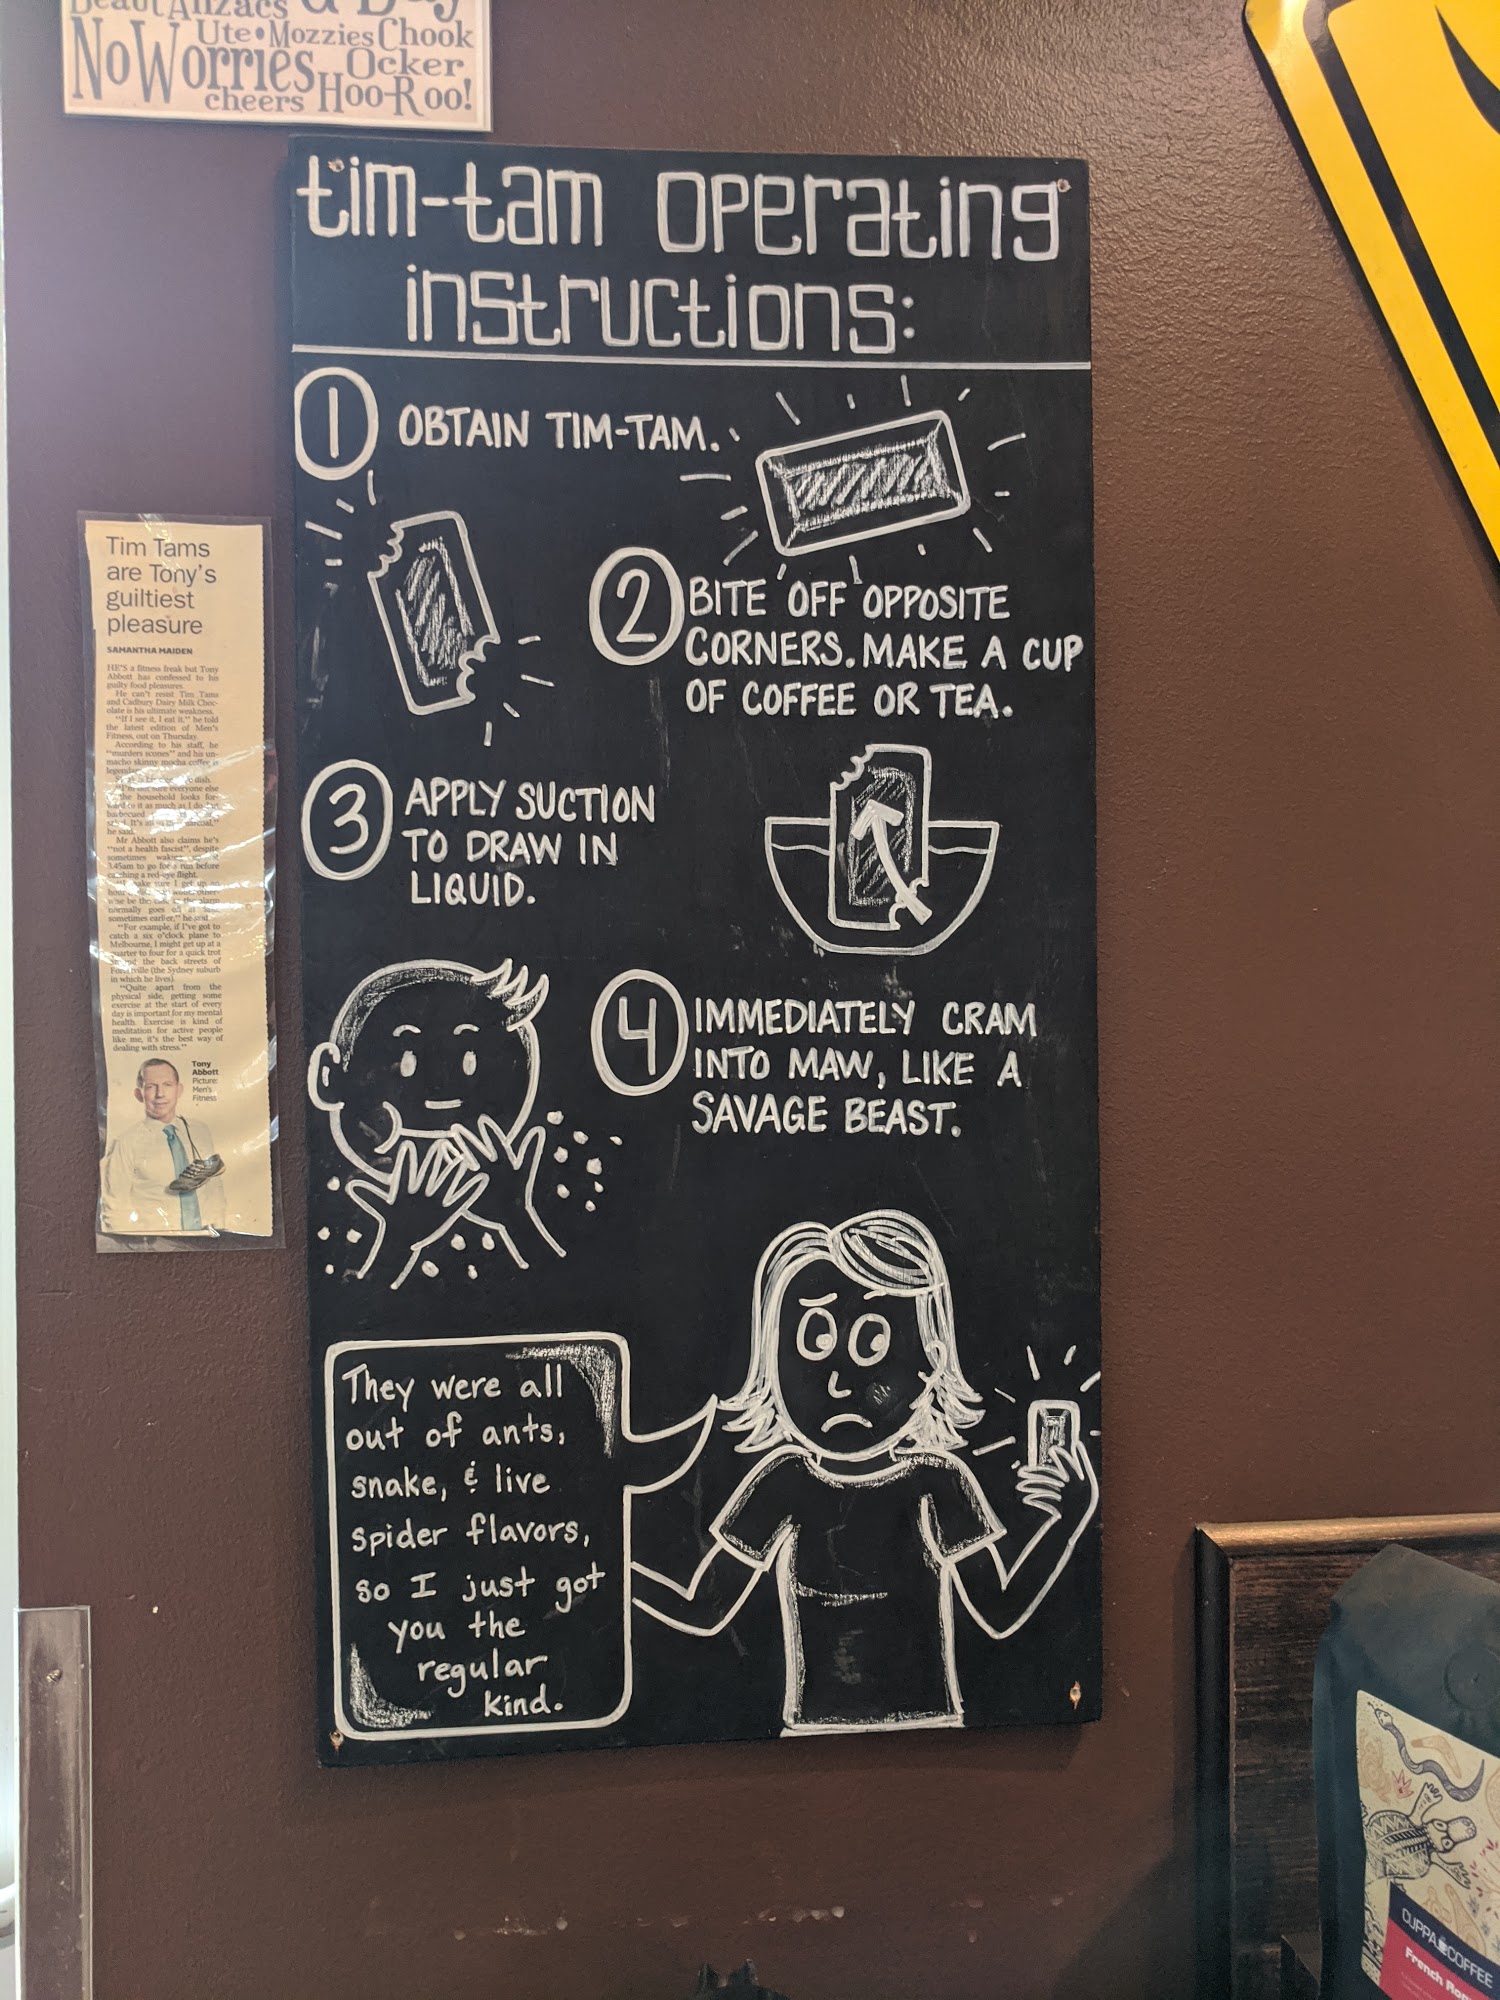 Beaut Anzacs G'Day
Ute•Mozzies Chook
No Worries Ocker
cheers Hoo-Roo!
tim-tam operating
instructions:
1 OBTAIN TIM-TAM.
2 BITE OFF OPPOSITE
CORNERS. MAKE A CUP
OF COFFEE OR TEA.
3 APPLY SUCTION
TO DRAW IN
LIQUID.
4 IMMEDIATELY CRAM
INTO MAW, LIKE A
SAVAGE BEAST.
They were all
out of ants,
snake, & live
spider flavors,
so I just got
you the
regular
kind.
Tim Tams
are Tony's
guiltiest
pleasure
SAMANTHA MAIDEN
HE'S a fitness freak but Tony
Abbott has confessed to his
guilty food pleasures.
He can't resist Tim Tams
and Cadbury Dairy Milk Choc-
olate is his ultimate weakness.
"If I see it, I eat it," he told
the latest edition of Men's
Fitness, out on Thursday.
According to his staff, he
"murders scones" and his un-
macho skinny mocha coffee is
dish.
sure everyone else
the household looks for-
ward to it as much as I do
barbecued
he said.
Mr Abbott also claims he's
"not a health fascist", despite
sometimes
3.45am to go for a run before
catching a red-eye flight.
sure I get up
normally goes
sometimes earlier," he said.
"For example, if I've got to
catch a six o'clock plane to
Melbourne, I might get up at a
quarter to four for a quick trot
the back streets of
Forestville (the Sydney suburb
in which he lives).
"Quite apart from the
physical side, getting some
exercise at the start of every
day is important for my mental
health. Exercise is kind of
meditation for active people
like me, it's the best way of
dealing with stress."
Tony
Abbott
Picture:
Men's
Fitness
CUPPA COFFEE
French